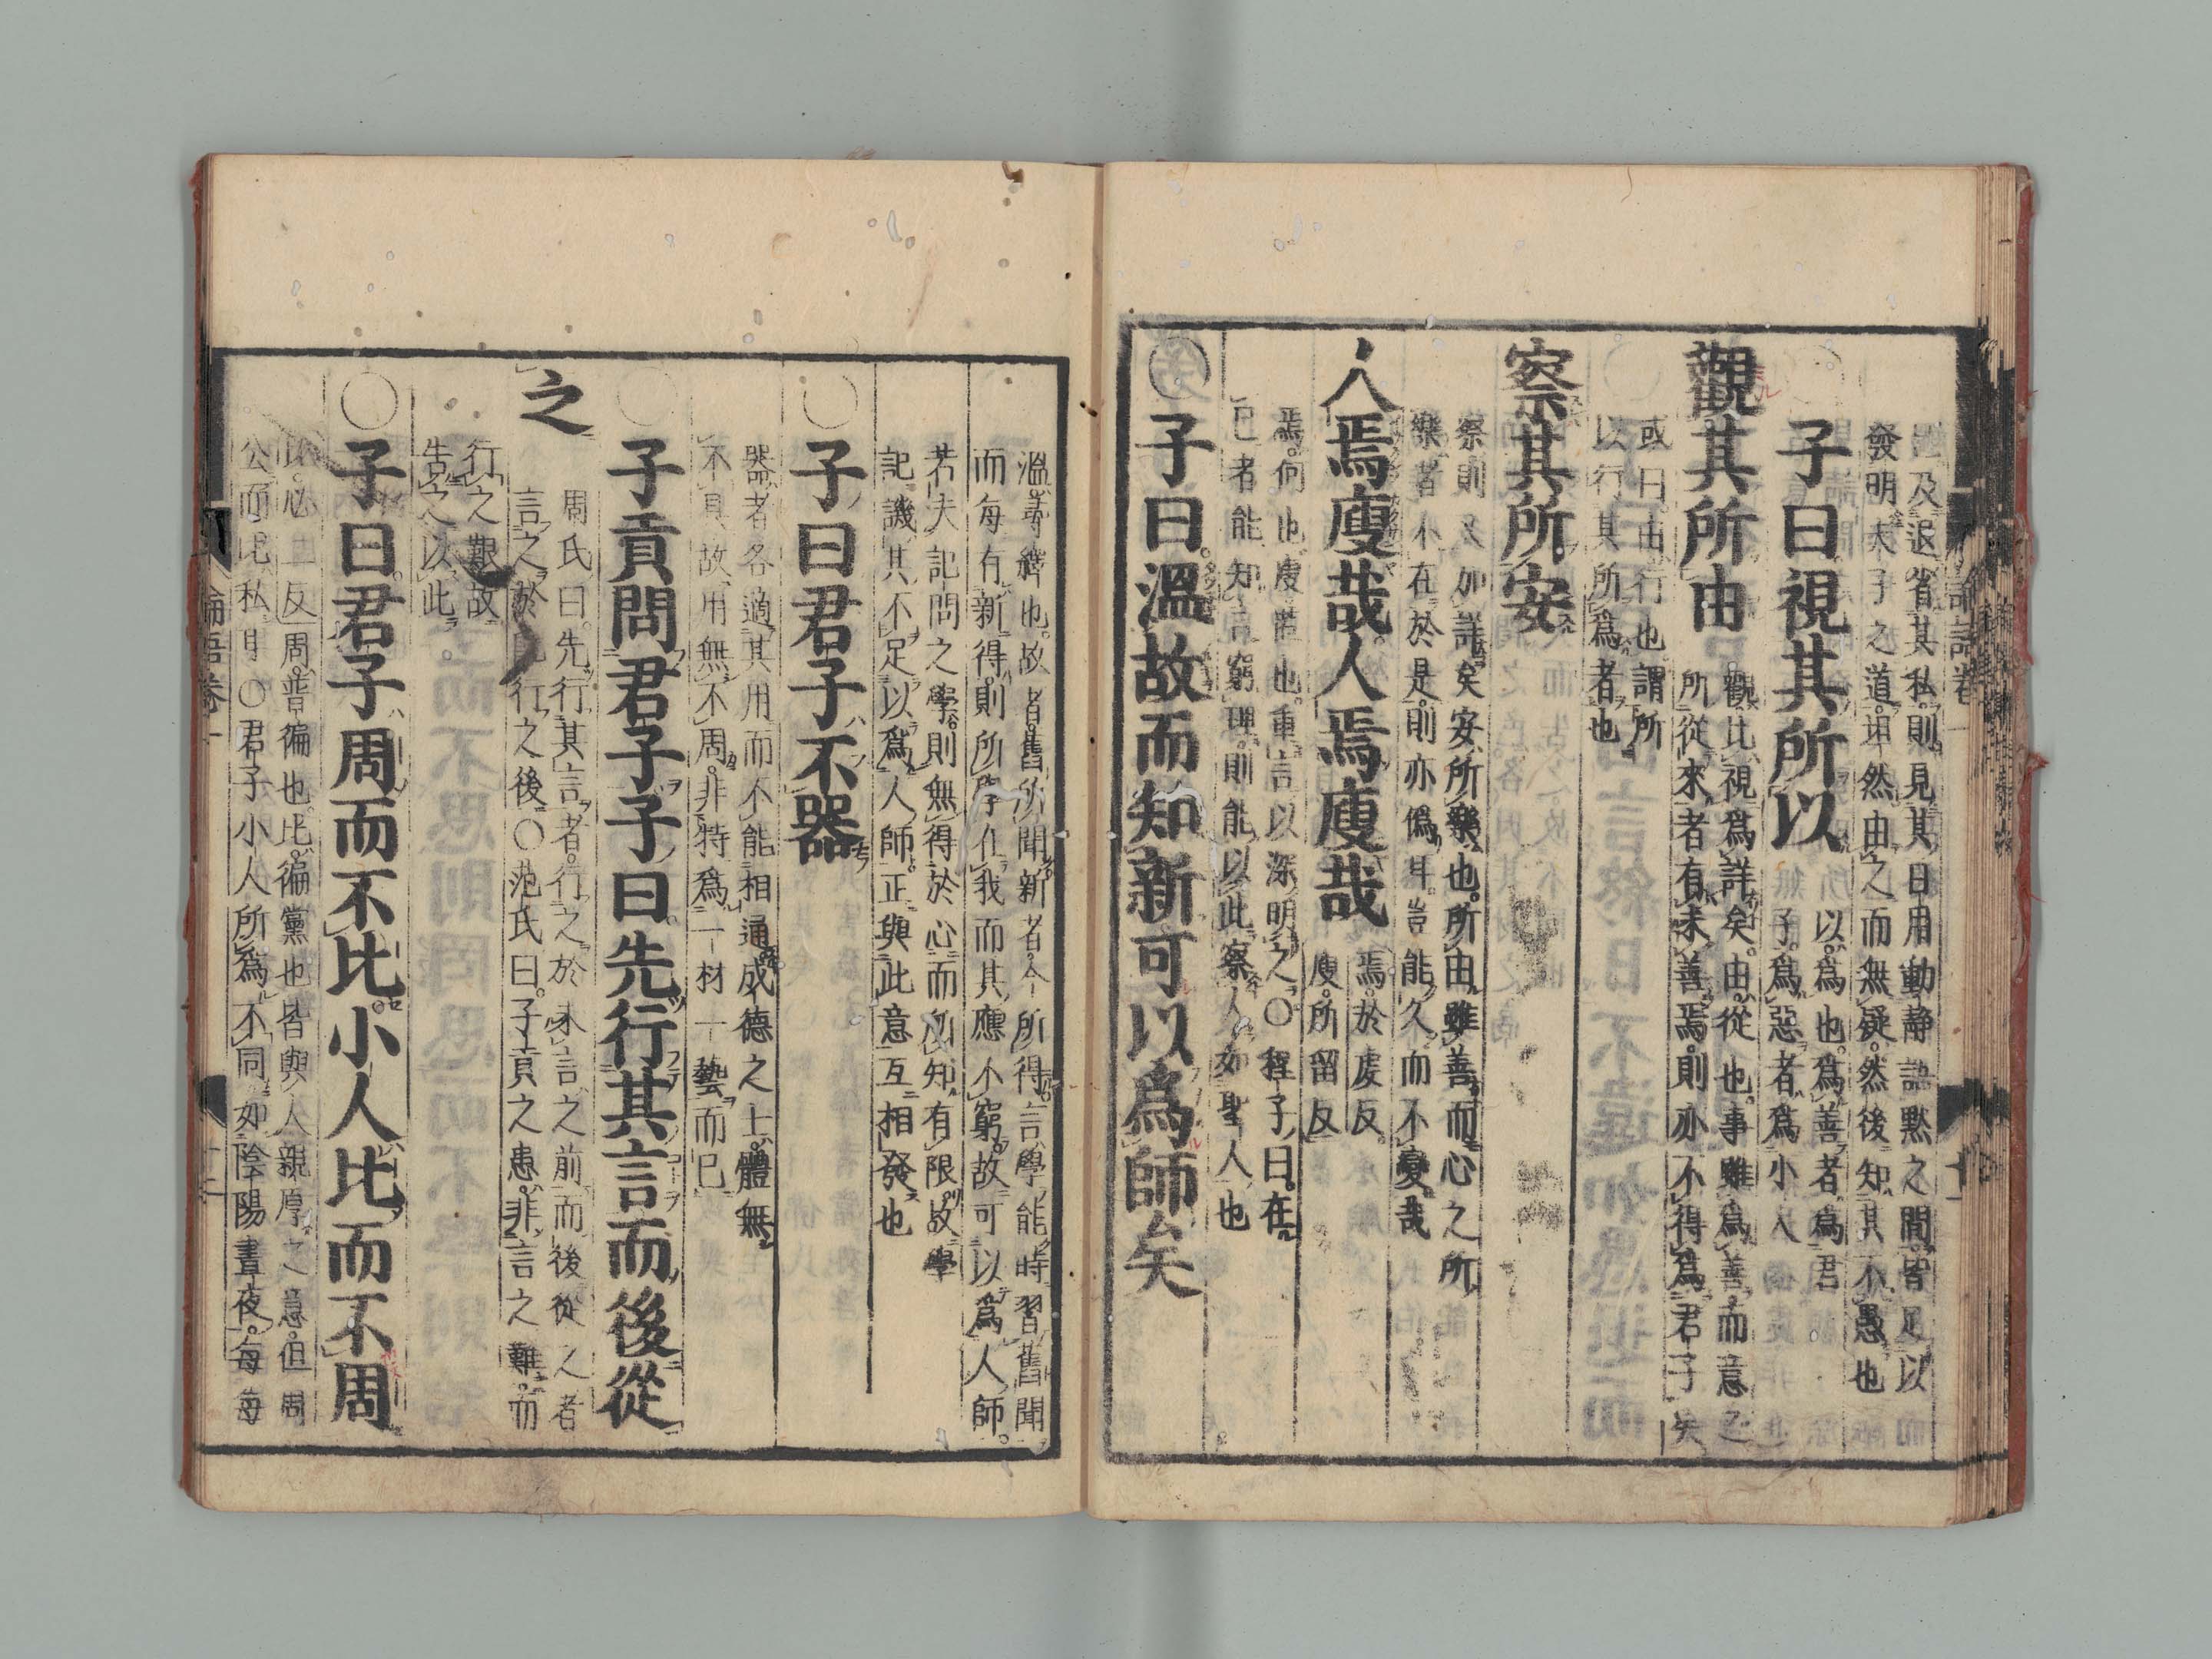 及退省其私則見其日用動静語黙之間皆足以
發明夫子之道坦然由之而無疑然後知其不愚也
○子曰視其所以
以爲也爲善者爲君
子爲惡者爲小人
觀其所由
觀比視爲詳矣由從也事雖爲善而意之
所從來者有未善焉則亦不得爲君子矣
或曰由行也謂所
以行其所爲者也
察其所安
察則又加詳矣安所樂也所由雖善而心之所
樂者不在於是則亦僞耳豈能久而不變哉
人焉廋哉人焉廋哉
焉於虔反
廋所留反
焉何也廋匿也重言以深明之○程子曰在
己者能知言窮理則能以此察人如聖人也
○子曰溫故而知新可以爲師矣
溫尋繹也故者舊所聞新者今所得言學能時習舊聞
而每有新得則所學在我而其應不窮故可以爲人師
若夫記問之學則無得於心而所知有限故學
記譏其不足以爲人師正與此意互相發也
○子曰君子不器
器者各適其用而不能相通成德之士體無
不具故用無不周非特爲一材一藝而已
○子貢問君子子曰先行其言而後從
之
周氏曰先行其言者行之於未言之前而後從之者
言之於既行之後○范氏曰子貢之患非言之難而
行之艱故
告之以此
○子曰君子周而不比小人比而不周
比必二反周普徧也比偏黨也皆與人親厚之意但周
公而比私耳○君子小人所爲不同如陰陽晝夜每每
論語卷一